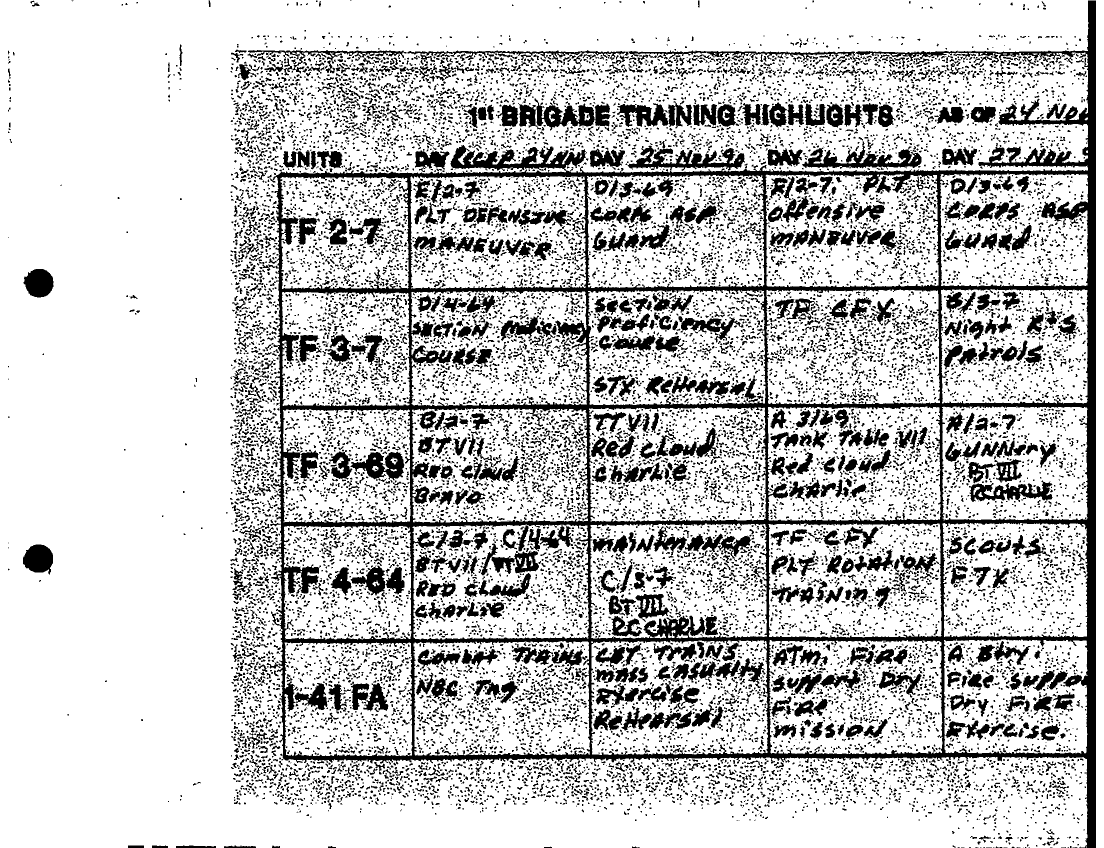 1st BRIGADE TRAINING HIGHLIGHTS AS OF 24 NOV
UNITS DAY RECAP 24 NOV DAY 25 NOV 90 DAY 26 NOV 90 DAY 27 NOV 9
TF 2-7
E/2-7
PLT DEFENSIVE
MANEUVER
D/3-69
CORPS ASP
GUARD
E/2-7: PLT
Offensive
MANEUVER
D/3-69
CORPS ASP
GUARD
TF 3-7
D/4-64
SECTION Proficiency
COURSE
SECTION
Proficiency
COURSE
STX REHEARSAL
TF CFX
B/3-7
Night R+S
PATROLS
TF 3-69
B/2-7
BTVII
RED Cloud
Bravo
TTVII
Red Cloud
Charlie
A 3/69
TANK TABLE VII
Red Cloud
Charlie
A/2-7
GUNNery
BT VII
RC CHARLIE
TF 4-64
C/3-7, C/4-64
BTVII/TTVII
RED CLoud
Charlie
MAINTENANCE
C/3-7
BT VIII
RC CHARLIE
TF CFX
PLT ROTATION
TRAINING
SCOUTS
FTX
1-41 FA
Combat TRAINS
NBC Tng
CBT TRAINS
MASS CASUALTY
Exercise
REHEARSAL
ATM: FIRE
Support Dry
FIRE
MISSION
A Btry:
FIRE SUPPO
Dry FIRE
Exercise.